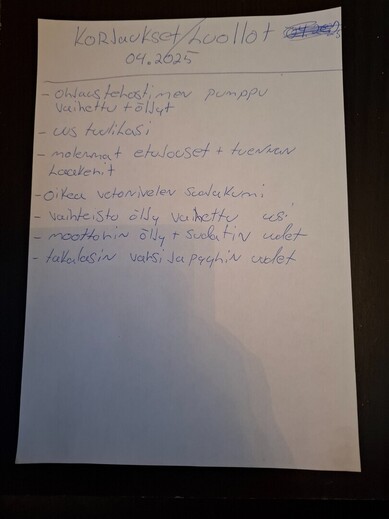 Korjaukset/Huollot
04.2025
- Ohjaustehostimen pumppu
vaihettu + öljyt
- uus tuulilasi
- molemmat etujouset + tuennan
laakerit
- Oikea vetonivelen suojakumi
- vaihteisto öljy vaihettu uusi
- moottorin öljy + suodatin uudet
- takalasin varsi ja pyyhin uudet